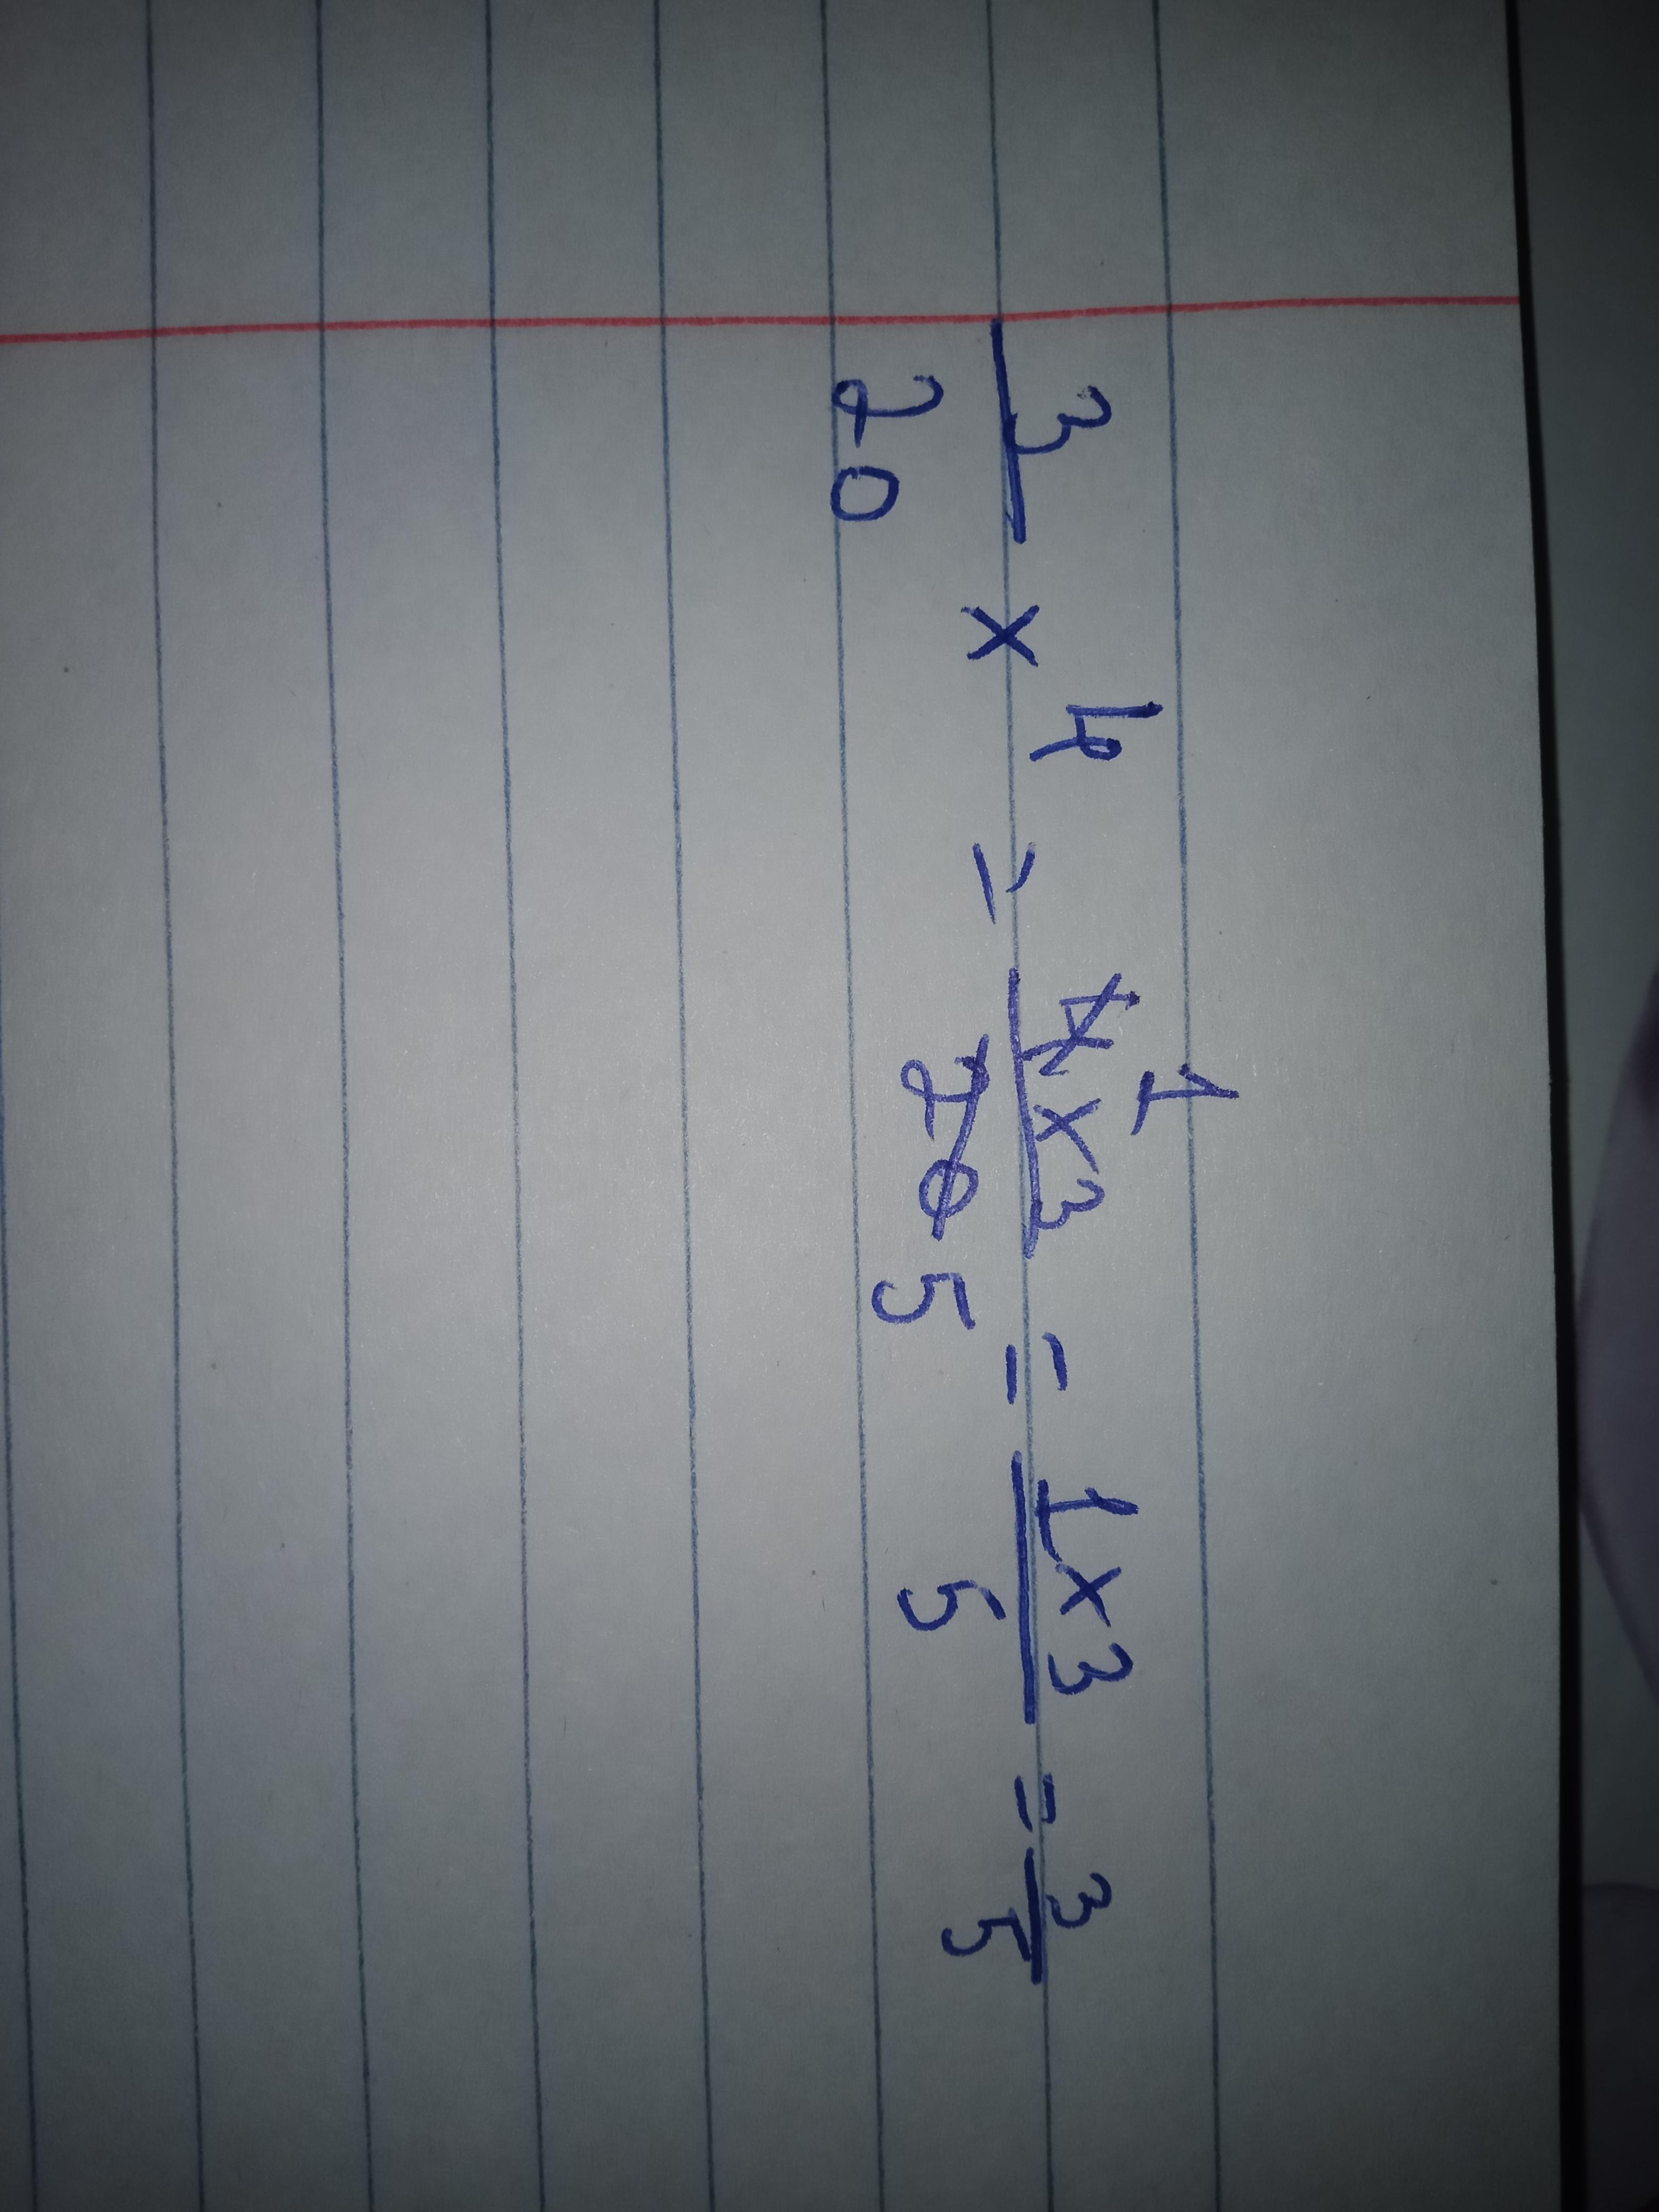 3/20 × 4 = 4×3/20 1 5 = 1×3/5 = 3/5